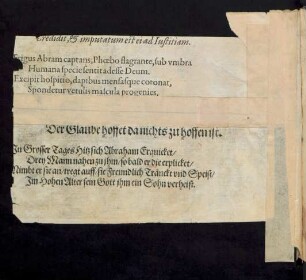 Credidit, & imputatum est ei ad Iustitiam.
Frigus Abram captans, Phœbo flagrante, sub vmbra
Humana specie sentit adesse Deum.
Excipit hospitio, dapibus mensasque coronat,
Spondetur vetulis mascula progenies.
Der Glaube hoffet da nichts zu hoffen ist.
In Grosser Tages Hitz sich Abraham
Drey Mann nahen zu jhm / so bald er die erplicket /
Nimbt er sie an / tregt auff / sie Freundlich Tränckt vnd Speist /
Im Hohen Alter sein Gott jhm ein Sohn verheist.